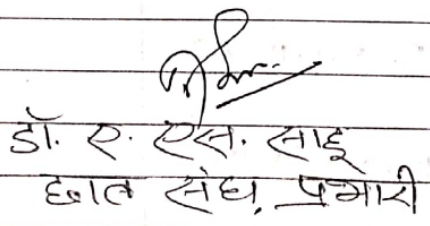 डॉ. ए. एस. साहू
छात्र संघ, प्रभारी